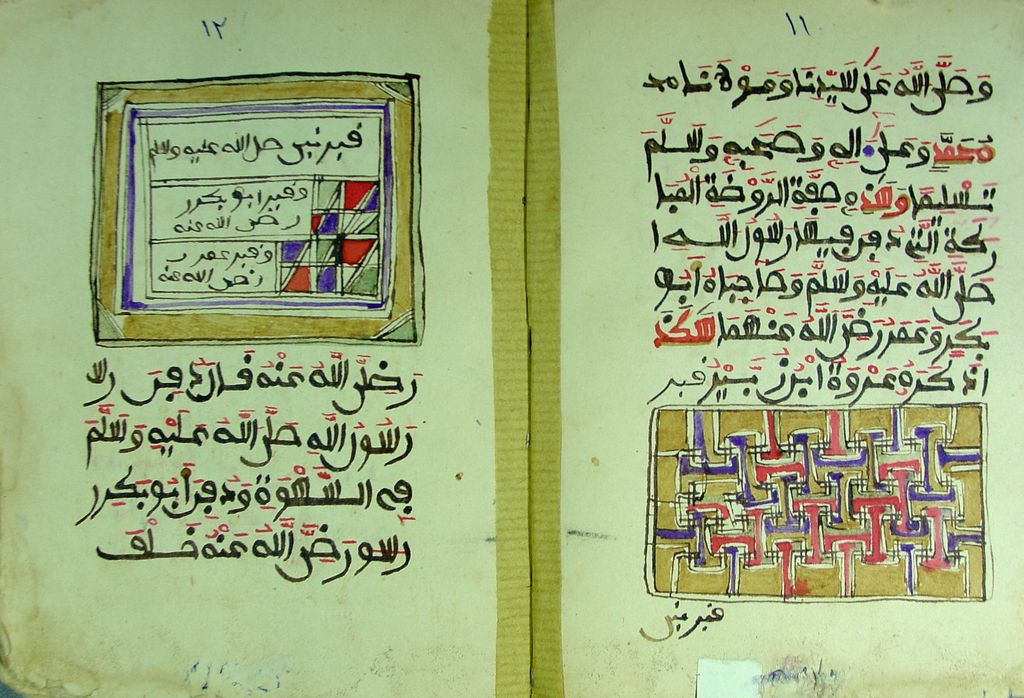 ١١
وَصَلَّى اللَّهُ عَلَى سَيِّدِنَا وَمَوْلَانَا
مُحَمَّدٍ وَعَلَى اله وَصَحْبِهِ وَسَلَّمَ
تَسْلِيمًا وَهَذِهِ صِفَةُ الرَّوْضَةِ الْمُبَا
رَكَةِ الَّتِي دُفِنَ فِيهَا رَسُولُ اللَّهِ ا
صَلَّى اللَّهُ عَلَيْهِ وَسَلَّمَ وَصَاحِبَاهُ أَبُو
بَكْرٍ وَعُمَرُ رَضِيَ اللَّهُ عَنْهُمَا هَكَذَ
اذَكَرَهُ عُرْوَةُ ابْنُ زُبَيْرٍ قبر
قبر نبي
١٢
قبر نبي صلى الله عليه وسلم
وقبر ابو بكرر
رضي الله عنه
وقبر عمر ر
رضي الله عنه
رَضِيَ اللَّهُ عَنْهُ قَالَ دُفِنَ
رَسُولُ اللَّهِ صَلَّى اللَّهُ عَلَيْهِ وَسَلَّمَ
فِي السَّهْوَةِ وَدُفِنَ أَبُو بَكْرٍ ر
رَضِيَ اللَّهُ عَنْهُ خَلْفَ